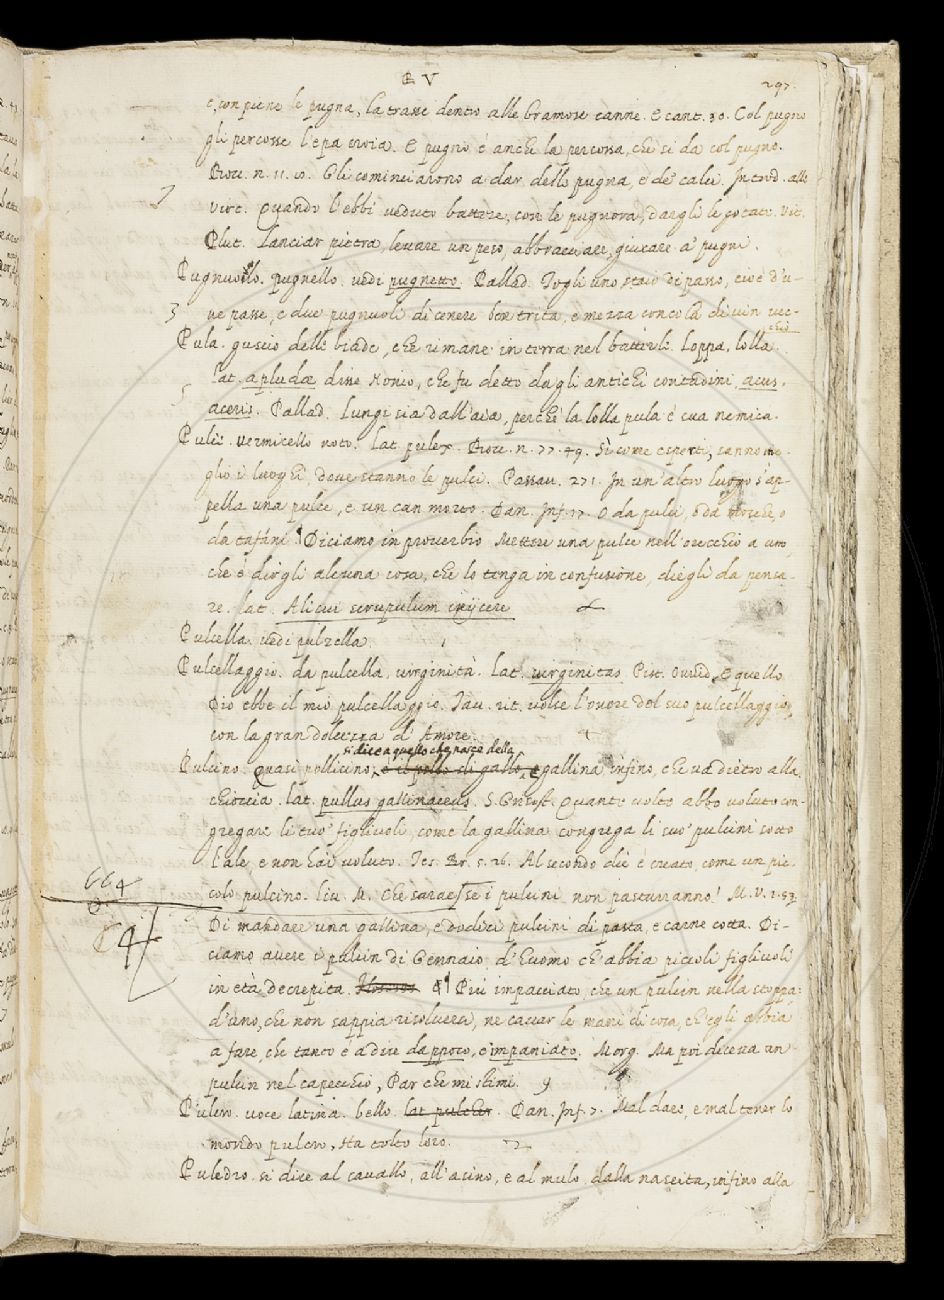 P V
297.
e, con piene le pugna, la trasse dentro alle bramose canne. E cant. 30. Col pugno
gli percosse l'epa croia. E pugno è anche la percossa, che si da col pugno.
Bocc. n. 11. 10. Gli cominciarono a dar delle pugna, e de' calci. Introd. alle
virt. Quando l'ebbi veduto battere, con le pugnora, dargli le gotate. Vit.
Plut. Lanciar pietra, levare un peso, abbracciare, giucare a' pugni.
Pugnuolo. pugnello. vedi pugnetto. Pallad. Togli uno staio di passo, cioè d'u-
ve passe, e due pugnuoli di cenere ben trita, e mezza concola di vin vec-
chio
Pula. guscio delle biade, che rimane in terra nel batterle. Loppa, lolla.
lat. apludæ disse Nonio, che fu detto dagli antichi contadini, acus.
aceris. Pallad. Lungi sia dall'aia, perchè la lolla pula è sua nemica.
Pulce. vermicello noto. lat. pulex. Bocc. n. 77. 49. Sì come esperti, sanno me-
glio i luoghi dove stanno le pulci. Passau. 271. In un'altro luogo s'ap-
pella una pulce, e un can morto. Dan. Inf. 17. O da pulci, o da mosche, o
da tafani. Diciamo in proverbio Mettere una pulce nell'orecchio a uno,
che è dirgli alcuna cosa, che lo tenga in confusione, e diegli da pensa-
re. lat. Alicui scrupulum iniijcere
Pulcella. vedi pulzella.
Pulcellaggio. da pulcella, virginità. Lat. virginitas Pist. Ovvid. E quello
Dio ebbe il mio pulcellaggio. Tav. rit. volse l'onore del suo pulcellaggio,
con la gran dolcezza d'Amore.
si dice a quello che nasce della
Pulcino. Quasi pollicino, e il pollo di gallo, e gallina infino, che va dietro alla
chioccia. lat. pullus gallinaceus. S. Grisost. Quante volte abbo voluto con-
gregare li tuo' figliuoli, come la gallina congrega li suo' pulcini sotto
l'ale, e non hai voluto. Tes. Br. 5. 26. Al secondo die è creato, come un pic-
colo pulcino. Liv. M. Che sarae, se i pulcini non pasturranno! M. V. 2. 53.
Di mandare una gallina, e dodici pulcini di pasta, e carne cotta. Di-
ciamo avere i pulcin di Gennaio, d'huomo ch'abbia piccoli figliuoli
in età decrepita. Più impacciato, che un pulcin nella stoppa:
d'uno, che non sappia risolversi, ne cavar le mani di cosa, ch'egli abbia
a fare, che tanto è a dire dappoco, e impaniato. Morg. Ma poi diceva un
pulcin nel capecchio, Par che mi stimi.
Pulcro. voce latina. bello. lat pulcher. Dan. Inf. 7. Mal dare, e mal tener lo
mondo pulcro, Ha tolto loro.
Puledro. si dice al cavallo, all'asino, e al mulo dalla nascita, infino alla